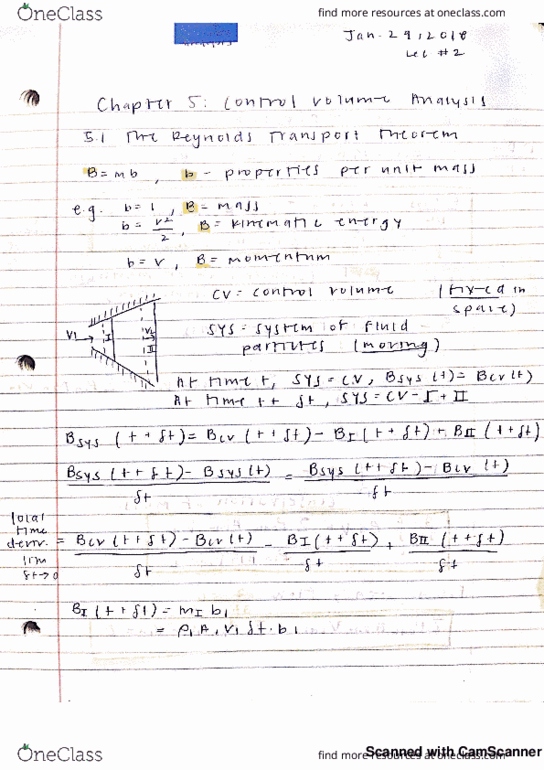 OneClass
find more resources at oneclass.com
Jan. 29, 2018
Lec #2
Chapter 5: Control volume Analysis
5.1 The Reynolds Transport Theorem
B = mb, b - properties per unit mass
e.g. b = 1, B = mass
b = V²/2, B = kinematic energy
b = V, B = momentum
CV = control volume (fixed in space)
SYS = system of fluid particles (moving)
V1 → I II
At time t, SYS = CV, Bsys (t) = Bcv (t)
At time t + δt, SYS = CV - I + II
Bsys (t + δt) = Bcv (t + δt) - BI (t + δt) + BII (t + δt)
Bsys (t + δt) - Bsys (t) / δt = Bsys (t + δt) - Bcv (t) / δt
total time deriv. lim δt→0
= Bcv (t + δt) - Bcv (t) / δt - BI (t + δt) / δt + BII (t + δt) / δt
BI (t + δt) = mI b1
= ρ1 A1 V1 δt · b1
OneClass
find more resources at oneclass.com
Scanned with CamScanner